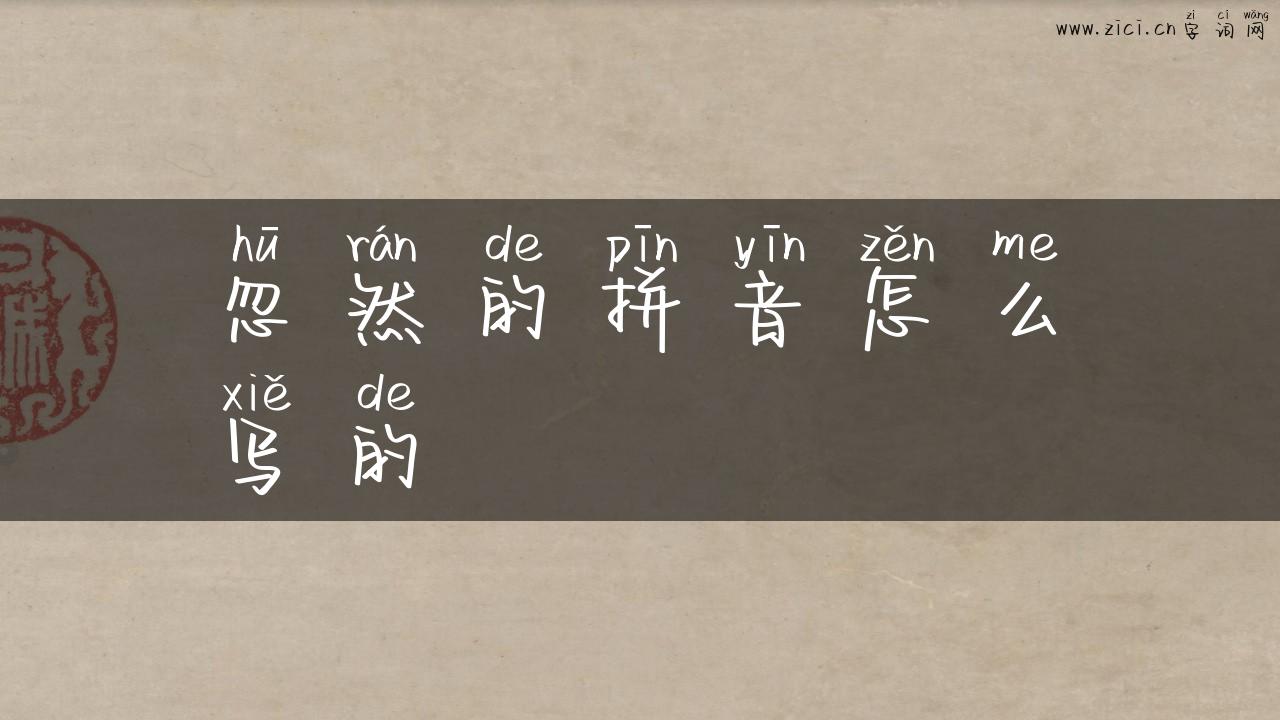 zì cí wǎng
www.zici.cn 字词网
hū rán de pīn yīn zěn me
忽然的拼音怎么
xiě de
写的